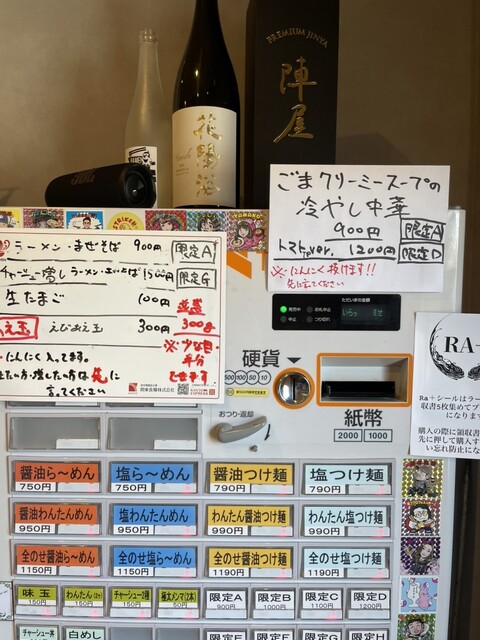 花陽浴
PREMIUM JINYA
陣屋
JBL
ごまクリーミースープの
冷やし中華
900円 限定A
トマトver. 1200円 限定D
※にんにく抜けます!!
先に言ってください
ラーメン・まぜそば 900円 限定A
チャーシュー増し ラーメン・まぜそば 1500円 限定G
生たまご 100円
えび玉 300円
並盛
300g
※少な目
半分
できます
にんにく入ってます。
先に
言ってください
ただいまの金額
発売中 お札中止
中止 つり切れ
いらっ ませ
硬貨
500 100 50 10
紙幣
2000 1000
おつり・返却
RA+
Ra+シールはラー
収書5枚集めてプ
になります
購入の際に領収書
先に押して購入す
い忘れ防止にな
醤油ら〜めん 750円
塩ら〜めん 750円
醤油つけ麺 790円
塩つけ麺 790円
醤油わんたんめん 950円
塩わんたんめん 950円
わんたん醤油つけ麺 990円
わんたん塩つけ麺 990円
全のせ醤油ら〜めん 1150円
全のせ塩ら〜めん 1150円
全のせ醤油つけ麺 1190円
全のせ塩つけ麺 1190円
味玉 150円
わんたん
チャーシュー
極太メンマ
限定A 900円
限定B 1000円
限定C 1100円
限定D 1200円
チャーシュー丼
白めし
限定E
限定F
限定G
限定H